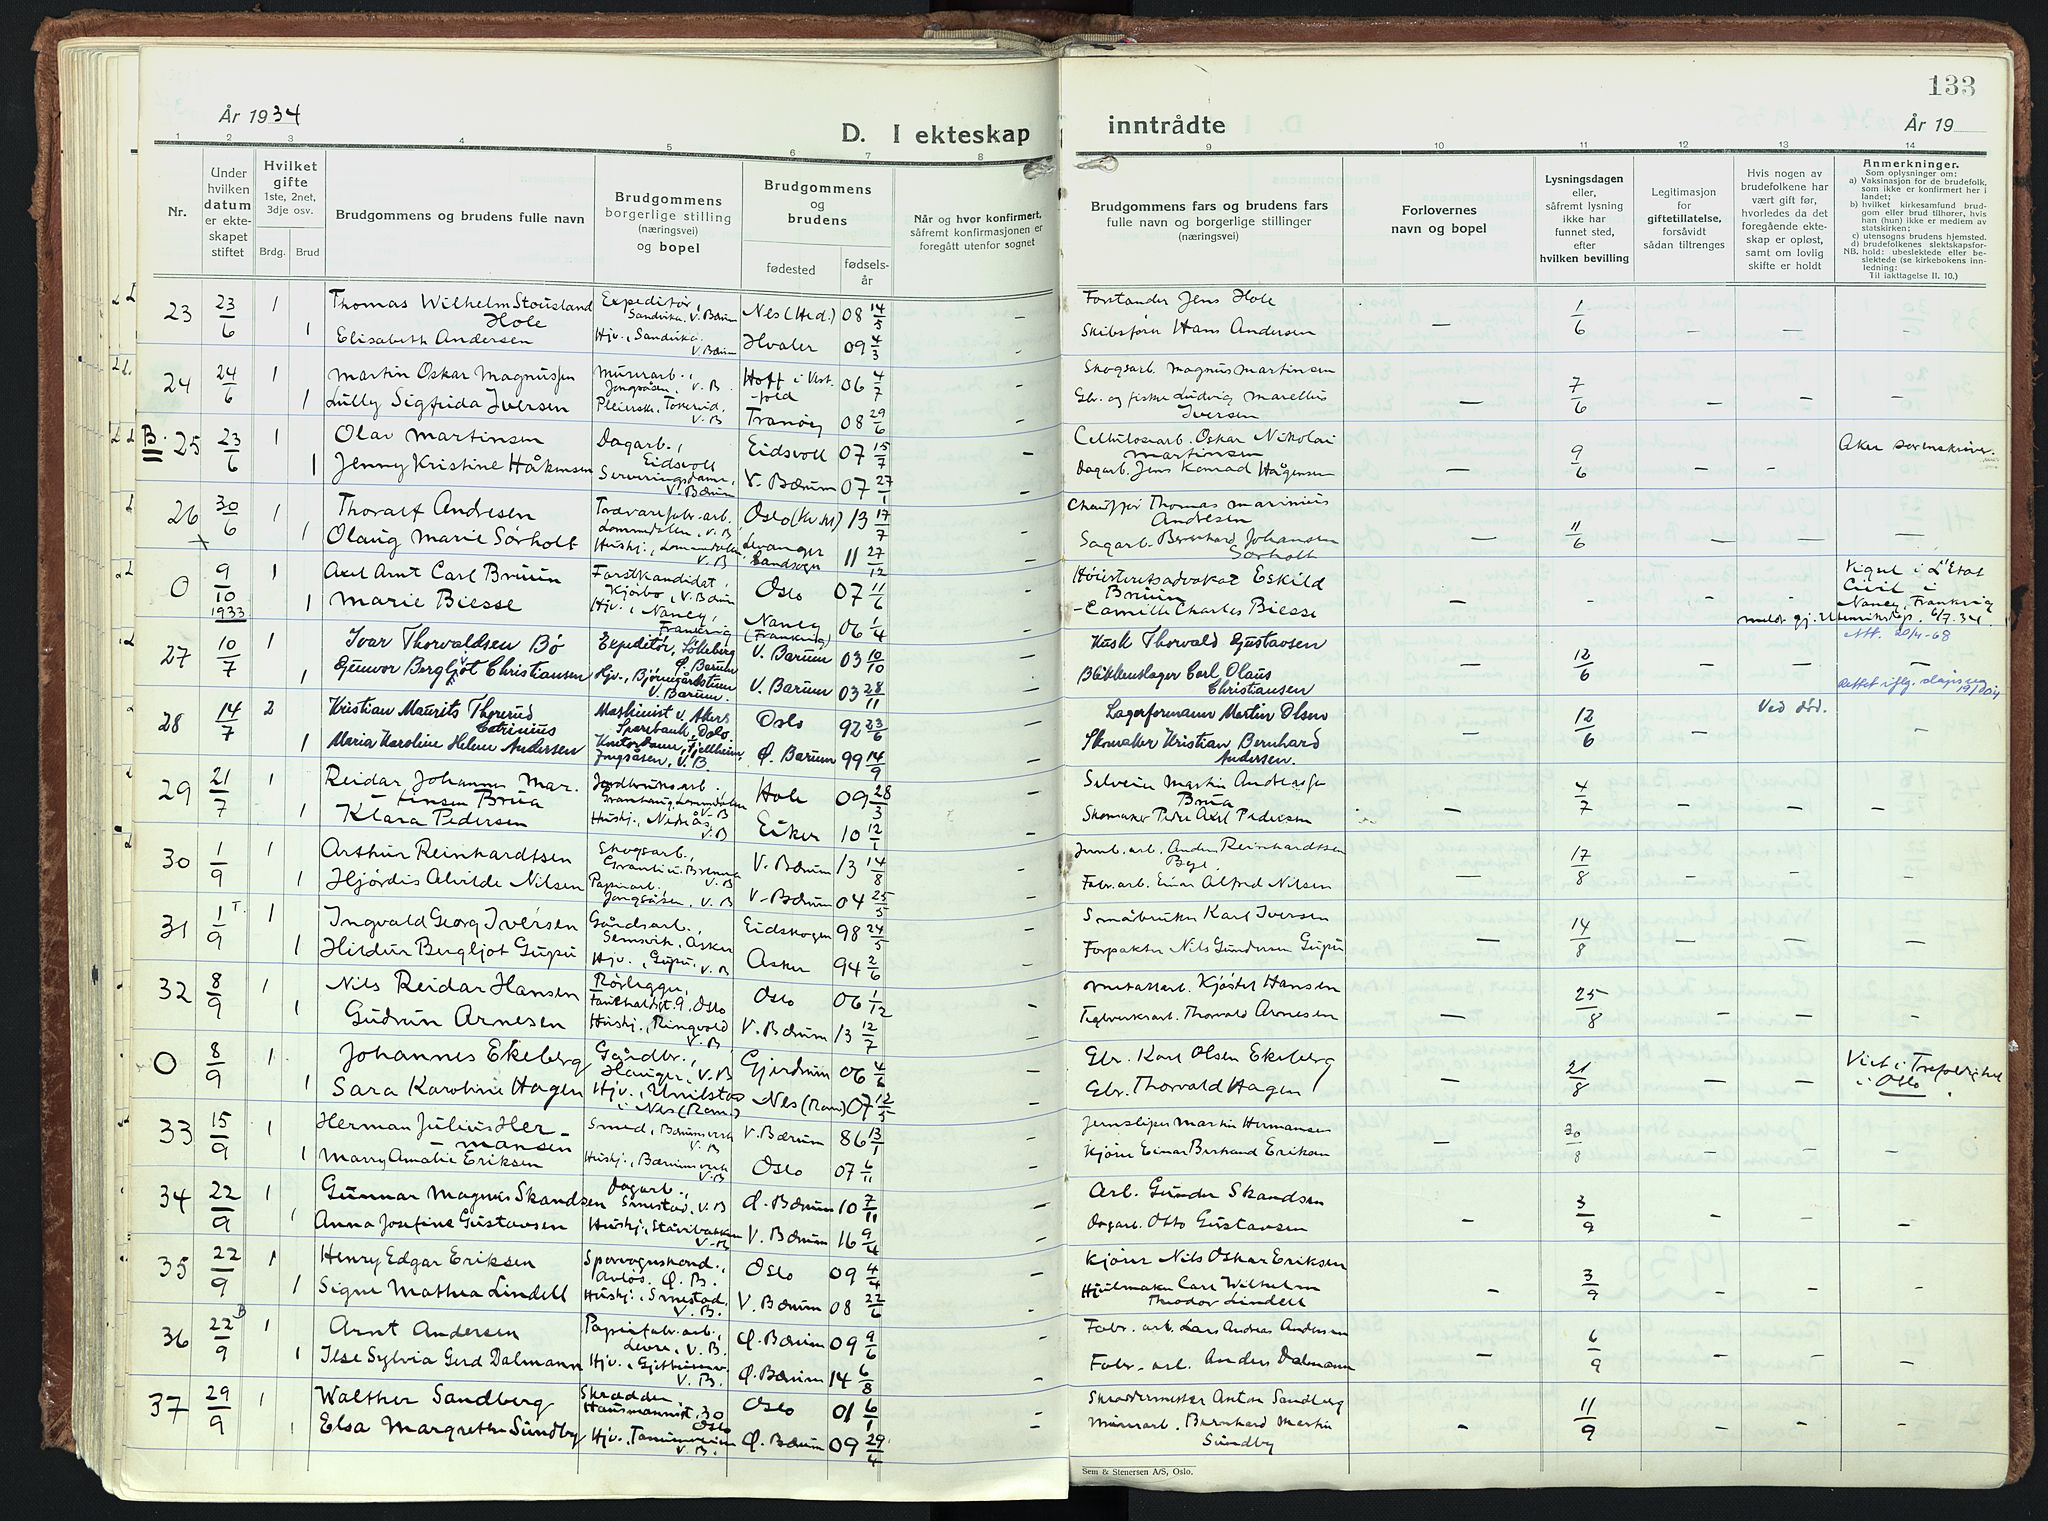 133
År 1934
D. I ekteskap inntrådte
År 19
1 2 3 4 5 6 7 8 9 10 11 12 13 14
Nr.
Under
hvilken
datum
er ekte-
skapet
stiftet
Hvilket
gifte
1ste, 2net,
3dje osv.
Brdg. Brud
Brudgommens og brudens fulle navn
Brudgommens
borgerlige stilling
(næringsvei)
og bopel
Brudgommens
og
brudens
fødested
fødsels-
år
Når og hvor konfirmert,
såfremt konfirmasjonen er
foregått utenfor sognet
Brudgommens fars og brudens fars
fulle navn og borgerlige stillinger
(næringsvei)
Forlovernes
navn og bopel
Lysningsdagen
eller,
såfremt lysning
ikke har
funnet sted,
efter
hvilken bevilling
Legitimasjon
for
giftetillatelse,
forsåvidt
sådan tiltrenges
Hvis nogen av
brudefolkene har
vært gift før,
hvorledes da det
foregående ekte-
skap er opløst,
samt om lovlig
skifte er holdt
Anmerkninger.
Som oplysninger om:
a) Vaksinasjon for de brudefolk,
som ikke er konfirmert her i
landet;
b) hvilket kirkesamfund brud-
gom eller brud tilhører, hvis
han (hun) ikke er medlem av
statskirken;
c) utensogns brudens hjemsted.
d) brudefolkenes slektskapsfor-
NB. hold: ubeslektede eller be-
slektede (se kirkebokens inn-
ledning:
Til iakttagelse II. 10.)
23 23/6 1 Thomas Wilhelm Stousland Hole Expeditør, Sandvika, V. Bærum Nes (Hed.) 08 14/5 Forstander Jens Hole 1/6
1 Elisabeth Andersen Hjv., Sandvika, V. Bærum Hvaler 09 4/3 Skibsfører Hans Andersen
24 24/6 1 Martin Oskar Magnussen Murerarb., Jongsåsen, V. B. Hoff i Vestfold 06 4/7 Skogsarb. Magnus Martinsen 7/6
1 Lully Sigfrida Iversen V. B Tranøy 08 29/6 Gbr. og fisker Ludvig Iversen
B. 25 23/6 1 Olav Martinsen Dagarb., Eidsvoll Eidsvoll 07 15/7 Cellulosearb. Oskar Nikolai Martinsen 9/6 Aker sorenskriver.
1 Jenny Kristine Håkensen Serveringsdame, V. Bærum V. Bærum 07 27/1 Dagarb. Jens Konrad Hågensen
26 30/6 1 Thoralf Andresen Trævarefabr.arb. Lommedalen, V. B Oslo 13 17/7 Chauffør Thomas Marinius Andresen 11/6
1 Olaug Marie Sørholt Hushj., Lommedalen V. B Levanger Landsogn 11 27/12 Sagarb. Bernhard Johansen Sørholt
0 9/10 1933 1 Axel Arnt Carl Bruun Forstkandidat, Kjørbo, V. Bærum Oslo 07 11/6 Høiesterettsadvokat Eskild Bruun Vigsel i L'Etat Civil i Nancy, Frankrig
1 Marie Biesse Hjv., Nancy, Frankrig Nancy (Frankrig) 06 1/4 Camille Charles Biesse meldt gj. Utenriksdep. 6/7.34.
27 10/7 1 Ivar Thorvaldsen Bø Expeditør, Ø. Bærum V. Bærum 03 10/10 Kusk Thorvald Gustavsen 12/6
1 Gunvor Bergljot Christiansen Hjv., V. Bærum. V. Bærum 03 28/11 Blikkenslager Carl Olaus Christiansen
28 14/7 2 Kristian Maurits Thyrerud Maskinist v. Akers Sparebank, Oslo. Oslo 92 23/6 Lagerformann Martin Olsen 12/6 Ved død.
1 Maria Karoline Helene Andersen Kontordame, Fjellheim, Jongsåsen, V. B. Ø. Bærum 99 14/9 Skomaker Kristian Bernhard Andersen.
29 21/7 1 Reidar Johannes Martinsen Brua Jordbruksarb., Granhaug, Lommedalen V. B Hole 09 28/3 Selveier Martin Andreassen Brua 4/7
1 Klara Pedersen Hushj., V. B Eiker 10 12/1 Skomaker Peder Axel Pedersen
30 1/9 1 Arthur Reinhardtsen Skogsarb., V. B V. Bærum 13 14/8 Anders Reinhardtsen Bye 17/8
1 Hjørdis Alvilde Nilsen Papirarb. Jongsåsen, V. B V. Bærum 04 25/5 Fabr.arb. Einar Alfred Nilsen
31 1/9 1 Ingvald Georg Iversen Gårdsarb., Semsvik, Asker Eidskogen 98 24/5 Småbruker Karl Iversen 14/8
1 Hildur Bergljot Gupu Hjv., Gupu, V. B Asker 94 2/6 Forpakter Nils Gundersen Gupu
32 8/9 1 Nils Reidar Hansen Rørlegger, Oslo Oslo 06 1/12 Kjøstel Hansen 25/8
1 Gudrun Arnesen Hushj., Ringvold V. B V. Bærum 13 12/7 Teglverksarb. Thorvald Arnesen
0 8/9 1 Johannes Ekeberg Gårdbr., Hauger, V. B Gjerdrum 06 4/6 Gbr. Karl Olsen Ekeberg 21/8 Viet i Trefoldighet i Oslo
1 Sara Karoline Hagen Hjv., i Nes (Rom.) Nes (Rom) 07 12/5 Gbr. Thorvald Hagen
33 15/9 1 Herman Julius Hermansen Smed, Bærumsverk V. B V. Bærum 86 13/1 Jernsliper Martin Hermansen 30/8
1 Marry Amalie Eriksen Hushj., Bærumsverk V. B Oslo 07 6/11 Kjører Einar Eriksen
34 22/9 1 Gunnar Magnus Skandsen Dagarb., Smestad, V. B Ø. Bærum 10 7/11 Arb. Gunder Skandsen 3/9
1 Anna Josefine Gustavsen Hushj., V. B V. Bærum 16 9/4 Dagarb. Otto Gustavsen
35 22/9 1 Henry Edgar Eriksen Sporvognskond., Avløs. Ø. B. Oslo 09 4/4 Kjører Nils Oskar Eriksen 3/9
1 Signe Mathea Lindell Hushj., Smestad, V. B. V. Bærum 08 22/6 Hjulmaker Carl Wilhelm Theodor Lindell
36 22/9 1 Arnt Andersen Papirfabr.arb., Levre, V. B. Ø. Bærum 09 9/6 Fabr. arb. Lars Andreas Andersen 6/9
1 Ilse Sylvia Gerd Dalmann Hjv., V. B. Ø. Bærum 14 6/8 Fabr. arb. Anders Dalmann
37 29/9 1 Walther Sandberg Skrædder Hausmannsgt. 30 Oslo Oslo 01 6/1 Skreddermester Anton Sandberg 11/9
1 Elsa Margrethe Sundby Hjv., V. B. Ø. Bærum 09 29/4 Murerarb. Bernhard Martin Sundby
Sem & Stenersen A/S, Oslo.